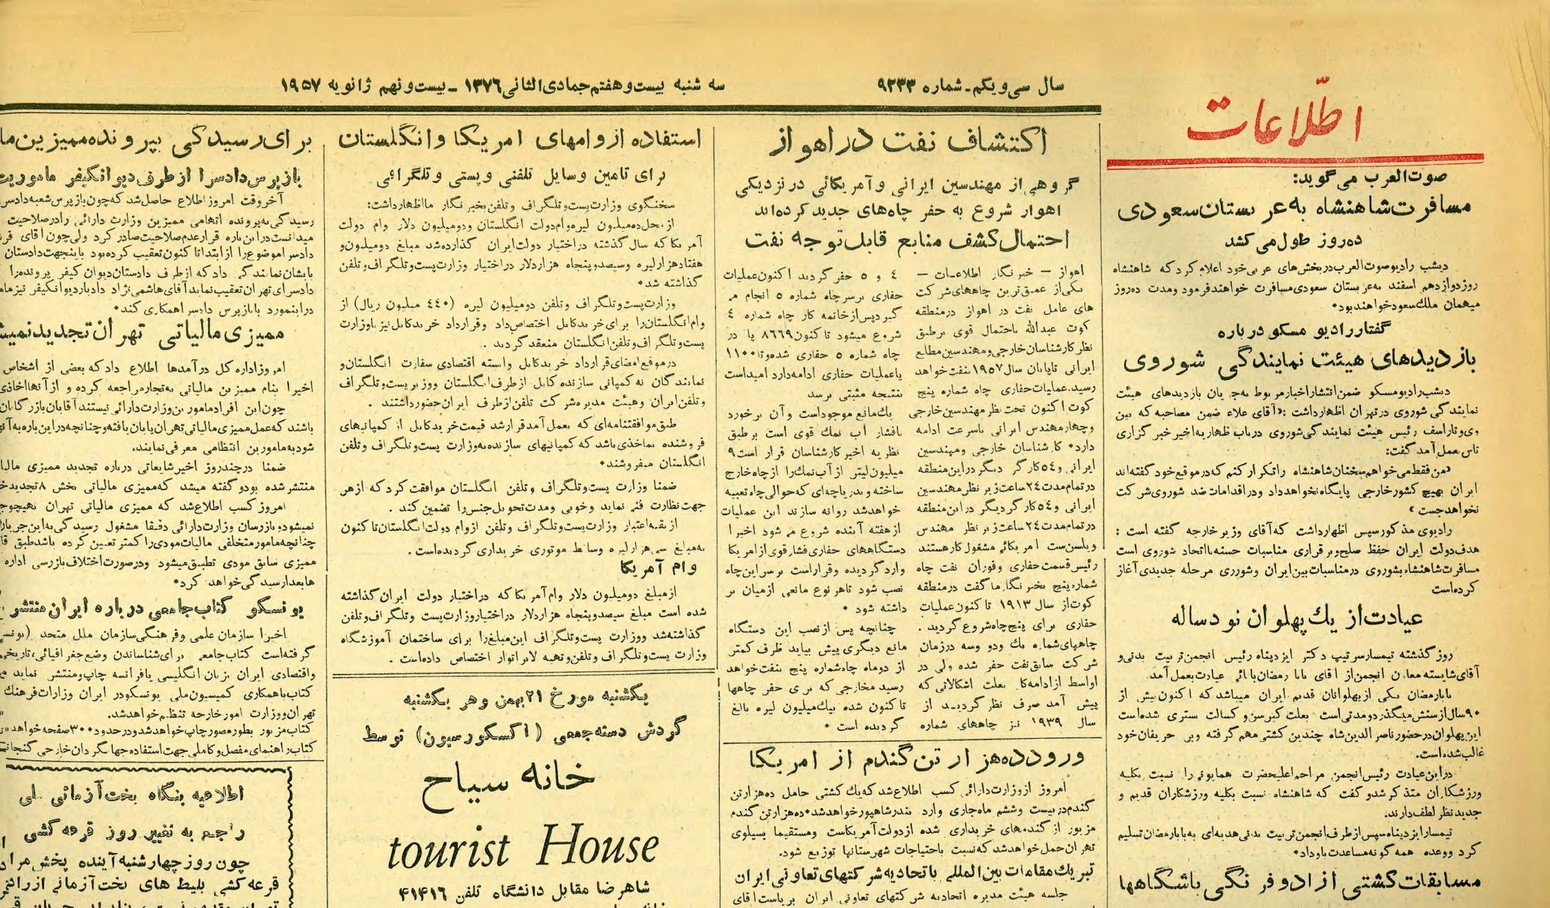 اطلاعات
سال سی‌ویکم ـ شماره ۹۲۳۳
سه شنبه بیست‌وهفتم جمادی‌الثانی ۱۳۷۶ ـ بیست‌و نهم ژانویه ۱۹۵۷
صوت‌العرب می‌گوید:
مسافرت شاهنشاه به عربستان سعودی
ده روز طول می‌کشد
دیشب رادیو صوت‌العرب در بخش‌های عربی خود اعلام کرد که شاهنشاه
روز دوازدهم اسفند به عربستان سعودی مسافرت خواهند فرمود ومدت ده روز
میهمان ملك سعود خواهند بود٠
گفتار رادیو مسکو درباره
بازدیدهای هیئت نمایندگی شوروی
دیشب رادیو مسکو ضمن انتشار اخبار مربوط به جریان بازدیدهای هیئت
نمایندگی شوروی در تهران اظهار داشت : «آقای علاء ضمن مصاحبه که بین
وی و تاراسف رئیس هیئت نمایندگی شوروی در باب اظهار به اخیر خبرگزاری
تاس بعمل آمد گفت:
«من فقط می‌خواهم سخنان شاهنشاه را تکرار کنم که در موقع خود گفته‌اند
ایران بهیچ کشور خارجی پایگاه نخواهد داد و در اقدامات ضد شوروی شرکت
نخواهد جست»
رادیوی مذکور سپس اظهار داشت که آقای وزیر خارجه گفته است :
هدف دولت ایران حفظ صلح و برقراری مناسبات حسنه با اتحاد شوروی است
مسافرت شاهنشاه بشوروی در مناسبات بین ایران وشوروی مرحله جدیدی آغاز
کرده است
عیادت از یك پهلوان نود ساله
روز گذشته تیمسار سرتیپ دکتر ایزدپناه رئیس انجمن تربیت بدنی و
آقای شایسته معاون انجمن از آقای بابا رمضان باباگر عیادت بعمل آمد.
بابا رمضان یکی از پهلوانان قدیم ایران میباشد که اکنون بیش از
۹۰ سال از سنش میگذرد و مدتی است بعلت کبر سن و کسالت بستری شده است
این پهلوان در حضور ناصرالدین شاه چندین کشتی مهم گرفته و بر حریفان خود
غالب شده است.
در این عیادت رئیس انجمن مراحم اعلیحضرت همایونی را نسبت بکلیه
ورزشکاران متذکر شد و گفت که شاهنشاه نسبت بکلیه ورزشکاران قدیم و
جدید نظر لطف دارند.
تیمسار ایزدپناه سپس از طرف انجمن تربیت بدنی هدیه‌ای به بابا رمضان تسلیم
کرد ووعده همه گونه مساعدت باو داد٠
مسابقات کشتی آزاد و فرنگی باشگاهها
اکتشاف نفت در اهواز
گروهی از مهندسین ایرانی و آمریکائی در نزدیکی
اهواز شروع به حفر چاه‌های جدید کرده‌اند
احتمال کشف منابع قابل توجه نفت
اهواز ـ خبرنگار اطلاعات ـ
یکی از عمیق‌ترین چاه‌های شرکت
های عامل نفت در اهواز در منطقه
کوت عبدالله باحتمال قوی بر طبق
نظر کارشناسان خارجی و مهندسین مطلع
ایرانی تا پایان سال ۱۹۵۷ بنفت خواهد
رسید. عملیات حفاری چاه شماره پنج
کوت اکنون تحت نظر مهندسین خارجی
و چهار مهندس ایرانی باسرعت ادامه
دارد٠ کارشناسان خارجی و مهندسین
ایرانی و ۵٤ کارگر دیگر در این منطقه
در تمام مدت ۲٤ ساعت زیر نظر مهندسین
ایرانی و ۵٤ کارگر دیگر در این منطقه
در تمام مدت ۲٤ ساعت زیر نظر مهندس
ویلسن ست امریکائی مشغول کار هستند
رئیس قسمت حفاری و فوران نفت چاه
شماره پنج بخبرنگار ما گفت در منطقه
کوت از سال ۱۹۱۳ تا کنون عملیات
حفاری برای پنج چاه شروع گردید .
چاه‌های شماره یك و دو وسه در زمان
شرکت سابق نفت حفر شده ولی در
اواسط از ادامه کار بعلت اشکالاتی که
پیش آمد صرف نظر گردید. از
سال ۱۹۳۹ نیز چاه‌های شماره
٤ و ۵ حفر گردید اکنون عملیات
حفاری بر سر چاه شماره ۵ انجام می
گیرد پس از خاتمه کار چاه شماره ٤
شروع میشود تاکنون ۸۶۶۹ پا در
چاه شماره ۵ حفاری شده و تا ۱۱۰۰۰
پا عملیات حفاری ادامه دارد امید است
نتیجه مثبتی برسد
یك مانع موجود است و آن برخورد
بافشار آب نمك قوی است بر طبق
نظریه اخیر کارشناسان قرار است ۹
میلیون لیتر از آب نمك را از چاه خارج
ساخته و بدریاچه‌ای که حوالی چاه تعبیه
خواهد شد روانه سازند این عملیات
از هفته آینده شروع می شود اخیرا
دستگاههای حفاری فشار قوی از آمریکا
وارد گردیده و قرار است بر سر این چاه
نصب شود تا هر نوع مانعی از میان بر
داشته شود ٠
چنانچه پس از نصب این دستگاه
مانع دیگری پیش نیاید ظرف کمتر
از دوماه چاه شماره پنج بنفت خواهد
رسید مخارجی که برای حفر چاهها
تا کنون شده بیك میلیون لیره بالغ
گردیده است ٠
ورود ده هزار تن گندم از امریکا
امروز از وزارت دارائی کسب اطلاع شد که یك کشتی حامل ده هزار تن
گندم در بیست وششم ماه جاری وارد بندر شاهپور خواهد شد٠ ده هزار تن گندم
مزبور از گندم‌های خریداری شده از دولت آمریکاست ومستقیما بسیلوی
تهران حمل خواهد شد که نسبت باحتیاجات شهرستانها توزیع شود.
تبریك مقامات بین‌المللی باتحادیه شرکتهای تعاونی ایران
جلسه هیئت مدیره اتحادیه شرکتهای تعاونی ایران بریاست آقای
استفاده از وامهای امریکا و انگلستان
برای تامین وسایل تلفنی وپستی و تلگرافی
سخنگوی وزارت پست و تلگراف و تلفن بخبرنگار ما اظهار داشت:
از محل ده میلیون لیره وام دولت انگلستان و دو میلیون دلار وام دولت
آمریکا که سال گذشته در اختیار دولت ایران گذارده شد مبلغ دو میلیون و
هفتاد هزار لیره و سیصد و پنجاه هزار دلار در اختیار وزارت پست و تلگراف و تلفن
گذاشته شد٠
وزارت پست و تلگراف و تلفن دو میلیون لیره (٤٤۰ میلیون ریال) از
وام انگلستان را برای خرید کابل اختصاص داد و قرارداد خرید کابل نیز با وزارت
پست و تلگراف و تلفن انگلستان منعقد گردید .
در موقع امضای قرارداد خرید کابل وابسته اقتصادی سفارت انگلستان و
نمایندگان نه کمپانی سازنده کابل از طرف انگلستان ووزیر پست و تلگراف
و تلفن ایران وهیئت مدیره شرکت تلفن از طرف ایران حضور داشتند .
طبق موافقتنامه‌ای که بعمل آمد قرار شد قیمت خرید کابل از کمپانیهای
فروشنده بماخذی باشد که کمپانیهای سازنده به وزارت پست و تلگراف و تلفن
انگلستان میفروشند٠
ضمنا وزارت پست و تلگراف و تلفن انگلستان موافقت کرد که از هر
جهت نظارت فنی نماید و خوبی ومدت تحویل جنس را تضمین کند .
از بقیه اعتبار وزارت پست و تلگراف و تلفن از وام دولت انگلستان تا کنون
بمبلغ سی هزار لیره وسائط موتوری خریداری گردیده است.
وام آمریکا
از مبلغ دو میلیون دلار وام آمریکا که در اختیار دولت ایران گذاشته
شده است مبلغ سیصد و پنجاه هزار دلار در اختیار وزارت پست و تلگراف و تلفن
گذاشته شد ووزارت پست و تلگراف این مبلغ را برای ساختمان آموزشگاه
وزارت پست و تلگراف و تلفن و تهیه لابراتوار اختصاص داده است.
یکشنبه مورخ ۲۱ بهمن و هر یکشنبه
گردش دسته‌جمعی (اکسکورسیون) توسط
خانه سیاح
tourist House
شاهرضا مقابل دانشگاه تلفن ۴۱۴۱۶
برای رسیدگی بپرونده ممیزین ما
بازپرس دادسرا از طرف دیوانکیفر ماموریت
آخر وقت امروز اطلاع حاصل شد که چون بازپرس شعبه دادسر
رسیدگی به پرونده اتهامی ممیزین وزارت دارائی را در صلاحیت
میدانست در این باره قرار عدم صلاحیت صادر کرد ولی چون آقای فر
دادسرا موضوع را از ابتدا تا کنون تعقیب کرده بود باینجهت دادستان
بایشان نمایندگی داد که از طرف دادستان دیوان کیفر پرونده را
دادسرای تهران تعقیب نماید آقای هاشمی نژاد دادیار دیوانکیفر نیز مام
در اینمورد با بازپرس دادسرا همکاری کند٠
ممیزی مالیاتی تهران تجدید نمیش
امروز اداره کل درآمدها اطلاع داد که بعضی از اشخاص
اخیرا بنام ممیزین مالیاتی به تجار مراجعه کرده و از آنها اخاذی
چون این افراد مامورین وزارت دارائی نیستند آقایان بازرگانان
باشند که عمل ممیزی مالیاتی تهران پایان یافته و چنانچه در این باره به آ
شود به مامورین انتظامی معرفی نمایند.
ضمنا در چند روز اخیر شایعاتی درباره تجدید ممیزی مالیا
منتشر شده بود و گفته میشد که ممیزی مالیاتی بخش ۸ تجدید خ
امروز کسب اطلاع شد که ممیزی مالیاتی تهران بهیچوجه
نمیشود و بازرسان وزارت دارائی دقیقا مشغول رسیدگی به این جریا
چنانچه مامور متخلفی مالیات مودی را کمتر تعیین کرده باشد طبق قا
ممیزی سابق مودی تطبیق میشود و در صورت اختلاف بازرسی اداره
ها بعدا رسیدگی خواهد کرد٠
یونسکو کتاب جامعی درباره ایران منتشر
اخیرا سازمان علمی و فرهنگی سازمان ملل متحد (یونس
گرفته است کتاب جامعی برای شناساندن وضع جغرافیائی، تاریخی
واقتصادی ایران بزبان انگلیسی یا فرانسه چاپ ومنتشر نماید
کتاب باهمکاری کمیسیون ملی یونسکو در ایران وزارت فرهنگ
تهران ووزارت امور خارجه تنظیم خواهد شد.
کتاب مزبور بطور مصور چاپ خواهد شد و در حدود ۳۰۰ صفحه خواهد
کتاب راهنمای مفصل و کاملی جهت استفاده جهانگردان خارجی
اطلاعیه بنگاه بخت آزمائی ملی
راجع به تغییر روز قرعه‌کشی
چون روز چهارشنبه آینده پخش
قرعه کشی بلیط های بخت آزمائی